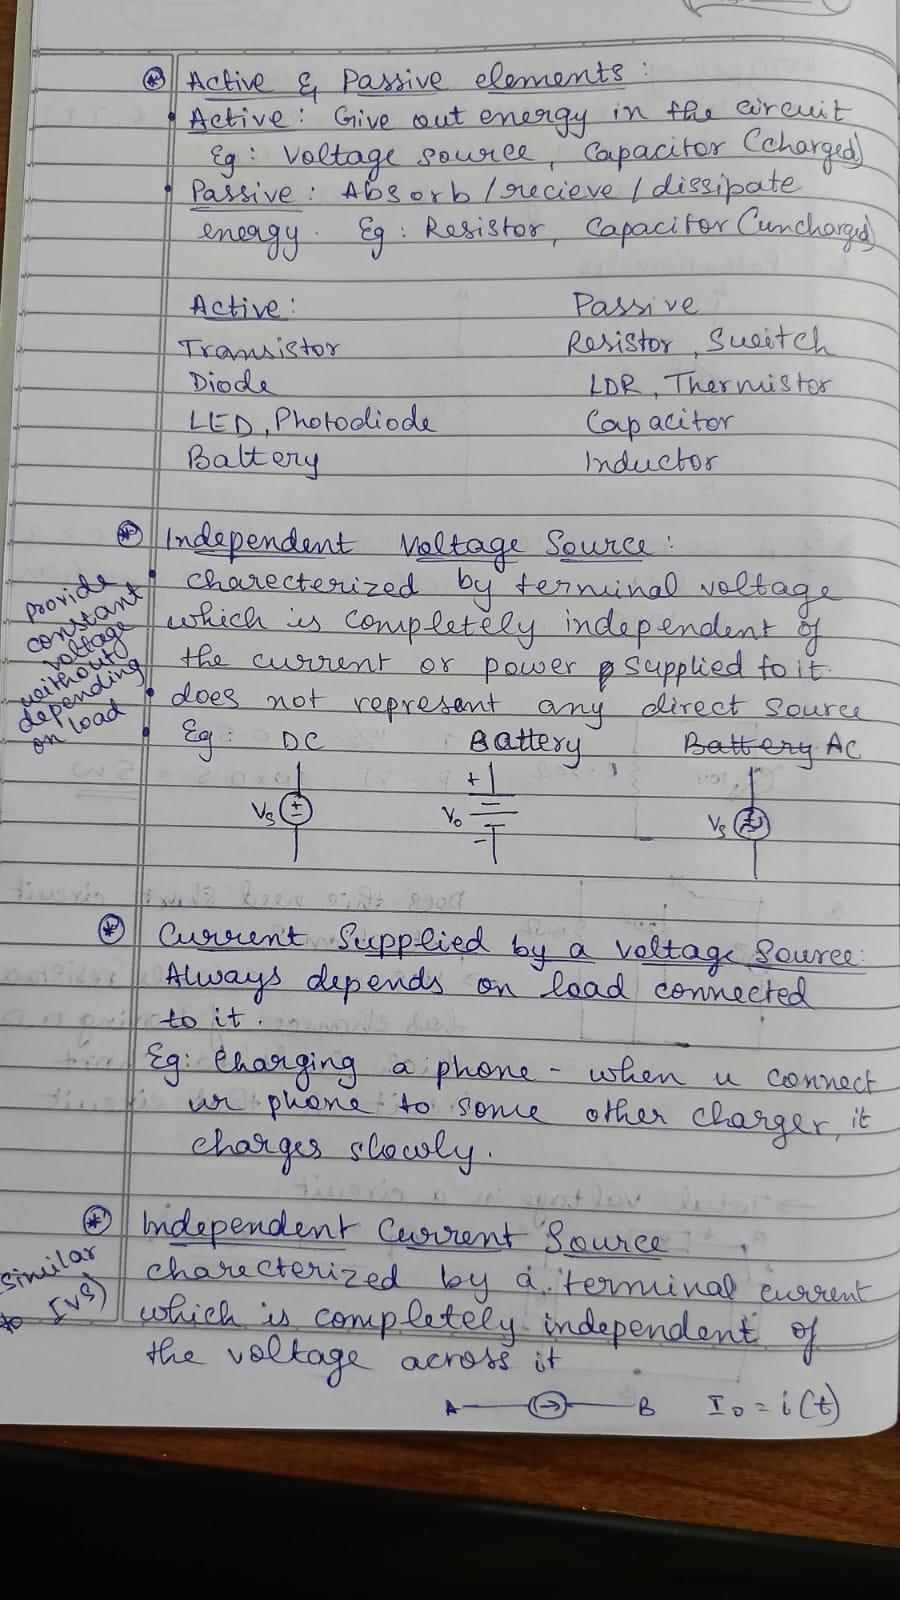 Active & Passive elements :
Active : Give out energy in the circuit
Eg : Voltage source, Capacitor (charged)
Passive : Absorb / recieve / dissipate
energy. Eg : Resistor, Capacitor (uncharged)
Active : Passive
Transistor Resistor, Switch
Diode LDR, Thermistor
LED, Photodiode Capacitor
Battery Inductor
Independent Voltage Source :
charecterized by terminal voltage
which is completely independent of
the current or power supplied to it.
does not represent any direct source
provide
constant
voltage
without
depending
on load
Eg : DC Battery Battery AC
Vs + - V₀ + - Vs
Current Supplied by a Voltage Source :
Always depends on load connected
to it.
Eg: Charging a phone - when u connect
ur phone to some other charger, it
charges slowly.
Independent Current Source
similar
to [VS]
charecterized by a terminal current
which is completely independent of
the voltage across it
A B I₀ = i(t)